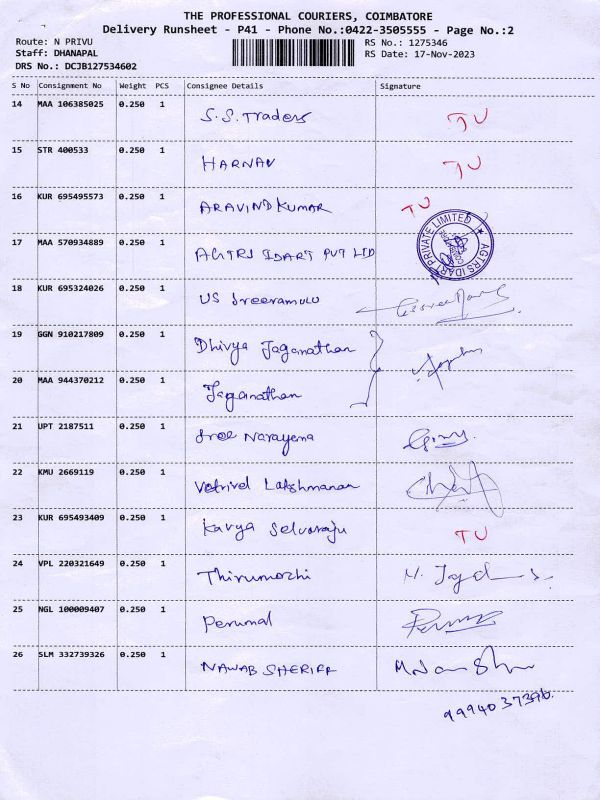 THE PROFESSIONAL COURIERS, COIMBATORE
Delivery Runsheet - P41 - Phone No.:0422-3505555 - Page No.:2
Route: N PRIVU RS No.: 1275346
Staff: DHANAPAL RS Date: 17-Nov-2023
DRS No.: DCJB127534602
S No Consignment No Weight PCS Consignee Details Signature
14 MAA 106385025 0.250 1 S.S. Traders TU
15 STR 400533 0.250 1 HARNAV TU
16 KUR 695495573 0.250 1 ARAVIND KUMAR TU
17 MAA 570934889 0.250 1 AGTRS IDART PVT LTD AGTRS IDART PRIVATE LIMITED
18 KUR 695324026 0.250 1 US Sreeramulu
19 GGN 910217809 0.250 1 Dhivya Jaganathan
20 MAA 944370212 0.250 1 Jaganathan
21 UPT 2187511 0.250 1 Sree Narayena
22 KMU 2669119 0.250 1 Vetrivel Lakshmanan
23 KUR 695493409 0.250 1 Kavya Selvaraju TU
24 VPL 220321649 0.250 1 Thirumozhi
25 NGL 100009407 0.250 1 Perumal
26 SLM 332739326 0.250 1 NAWAB SHERIFF
9994037396